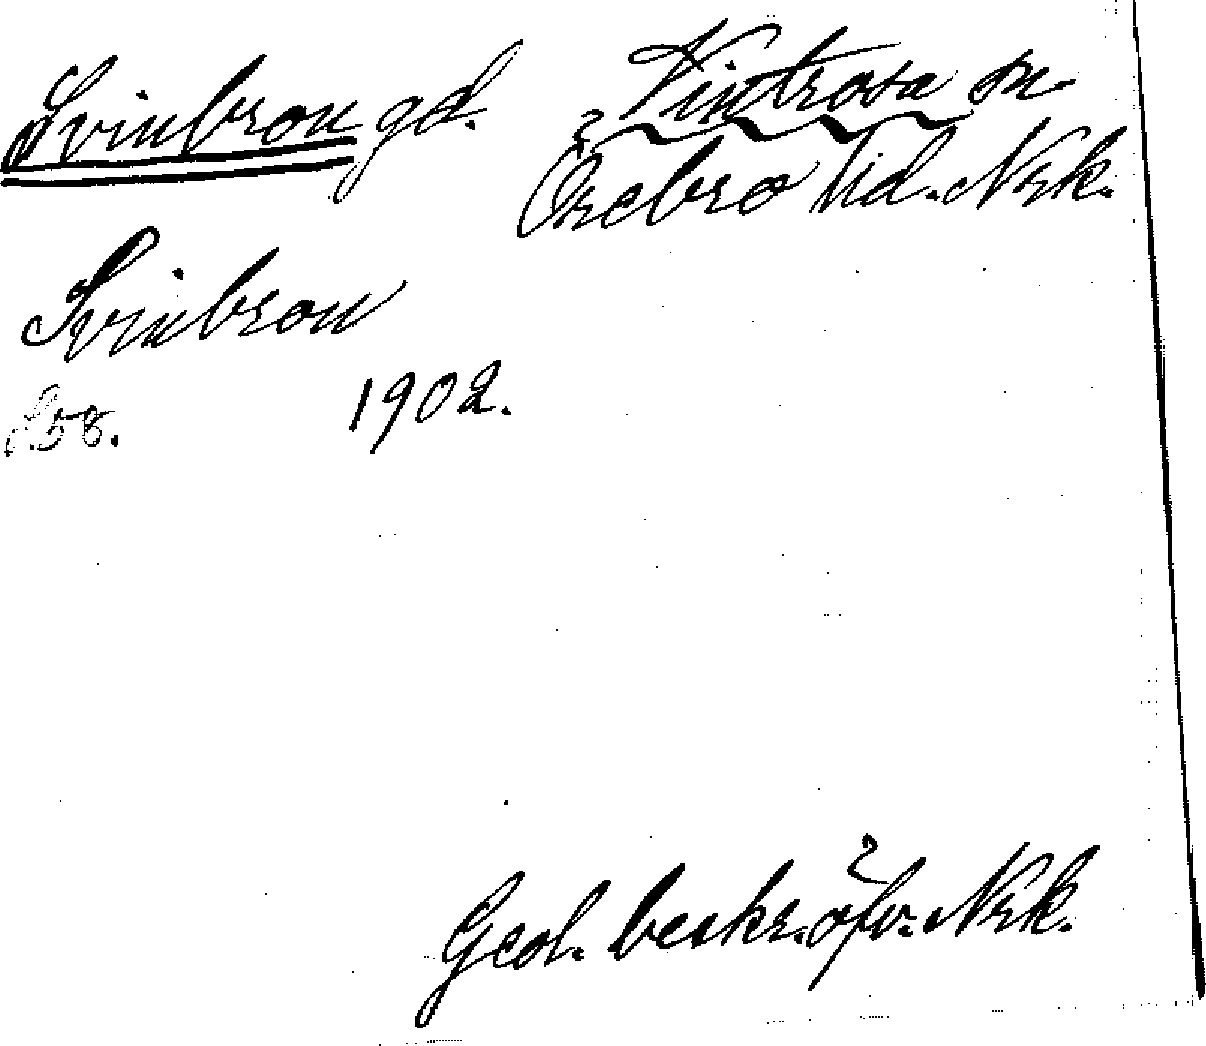 Svinbron gd. Vintrosa sn
Örebro hd. Nrk.
Svinbron
S. 58. 1902.
Geol. beskr. öfv. Nrk.